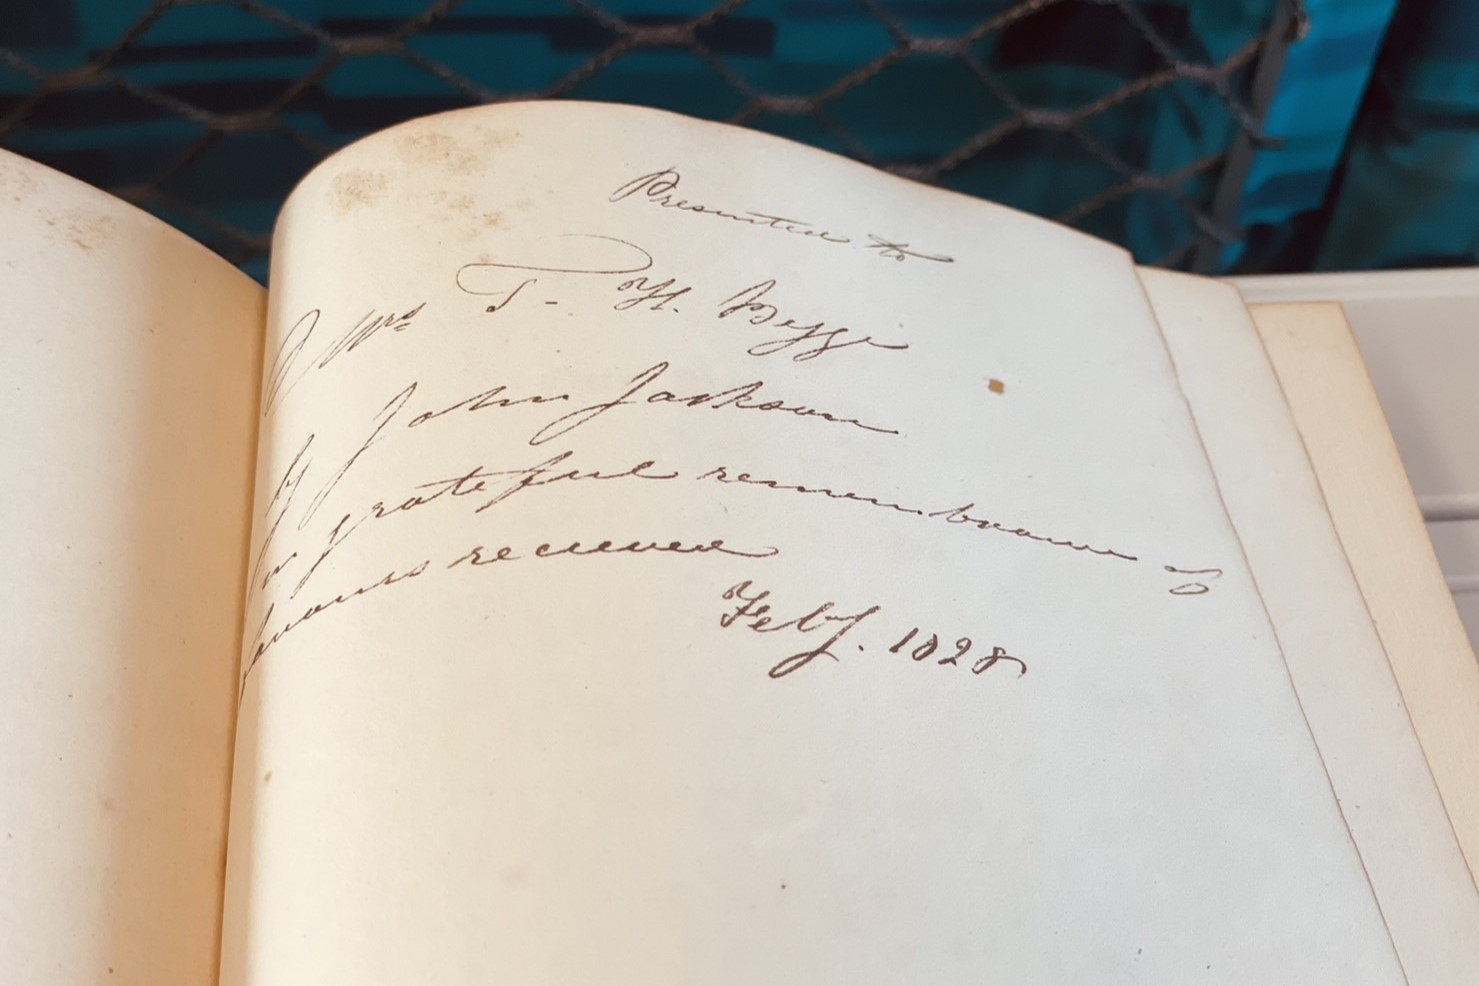 Presented to
Mrs T. H. Begge
by John Jackson
in grateful remembrance of
favours received
Feby. 1828